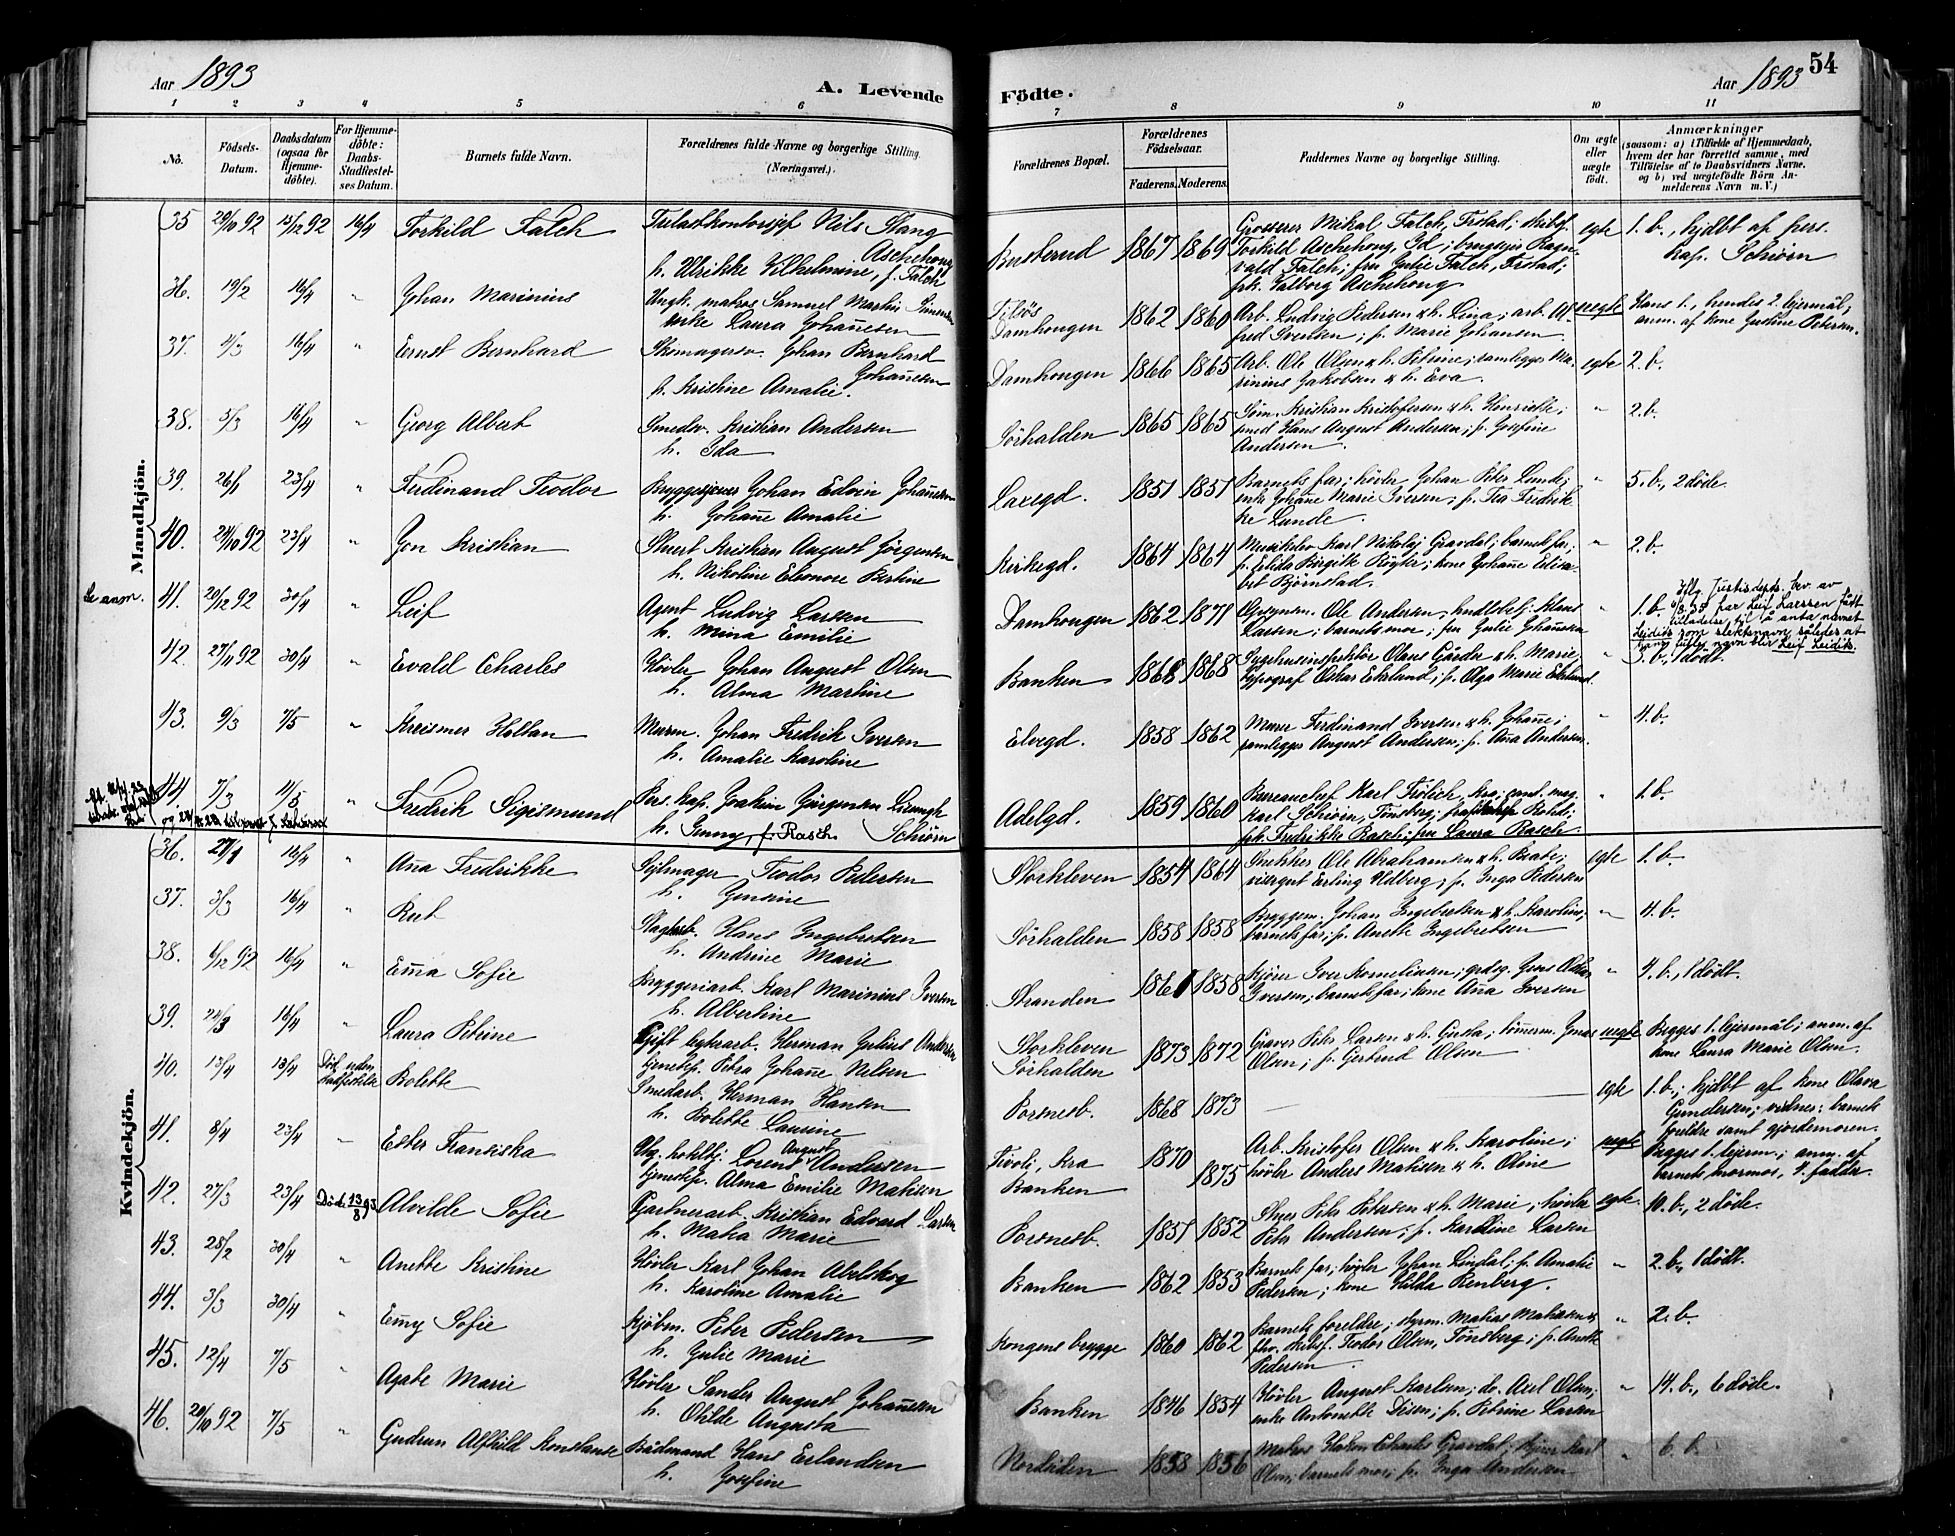 Aar 1893
A. Levende
Fødte.
Aar 1893
54
1 2 3 4 5 6 7 8 9 10 11
No.
Fødsels-Datum.
Daabsdatum (ogsaa for Hjemme-døbte).
For Hjemme-døbte: Daabs-Stadfæstel-ses Datum.
Barnets fulde Navn.
Forældrenes fulde Navne og borgerlige Stilling (Næringsvei).
Forældrenes Bopæl.
Forældrenes Fødselsaar.
Faderens. Moderens.
Faddernes Navne og borgerlige Stilling.
Om ægte eller uægte født.
Anmærkninger
(saasom: a) i Tilfælde af Hjemmedaab, hvem der har forrettet samme, med Tilføielse af to Daabsvidners Navne. og b) ved uægtefødte Børn An-melderens Navn m. V.)
Mandkjøn.
35 29/10 92 15/12 92 16/4 Torkild Falch
Nils Stang Aschehoug
h. Ulrikke Vilhelmine, f. Falch
Busterud 1867 1869
Grosserer Mikal Falch, Frstad; skibsf.
Torkild Aschehoug, Id; brugsejer Ragn-
vald Falch; fru Julie Falch, Frstad;
frk. Valborg Aschehoug
egte 1. b., hjdbt af pers.
kap. Schiørn
36. 19/2 16/4 " Johan Marinius
Ungk. matros Samuel Martin Simensen
enke Laura Johannesen
Tistøs
Damhougen 1862 1860
Arb. Ludvig Pedersen & h. Lina; arb. Al-
fred Svensen; p. Marie Johansen
uegte Hans 1., hendes 2. lejermål;
anm. af kone Justine Petersen.
37. 4/3 16/4 " Ernst Bernhard
Skomagersv. Johan Bernhard Johannesen
h. Kristine Amalie.
Damhougen 1866 1865
Arb. Ole Olsen & h. Petrine; samlegges Ma-
rinius Jakobsen & h. Eva.
egte 2. b.
38. 5/3 16/4 " Georg Albert
Smedsv. Kristian Andersen
h. Ida
Sørhalden 1865 1865
Søm. Kristian Kristofersen & h. Henriette;
smed Hans August Andersen; p. Josefine
Andersen.
" 2. b.
39. 26/1 23/4 " Ferdinand Teodor
Bryggesjouer Johan Edvin Johannesen
h. Johanne Amalie
Laxegd. 1851 1857
Barnets far; høvler Johan Peter Lunde;
enke Johanne Marie Iversen; p. Tea Fredrik-
ke Lunde.
" 5. b., 2 døde.
40. 24/10 92 23/4 " Jon Kristian
Stuert Kristian August Jørgensen
h. Nikoline Eleonore Bertine
Kirkegd. 1864 1864
Musikelev Karl Nikolaj Gravdal; barnets far;
p. Elida Birgitte Rigter; kone Johanne Elisa-
bet Bjørnstad.
" 2. b.
Se anm. 41. 20/12 92 30/4 " Leif
Agent Ludvig Larssen
h. Mina Emilie
Damhougen 1862 1871
Ole Andersen; hndlsbtj. Klaus
Larsen; barnets mor; fru Julie Johansen
" 1. b. Iflg. Justisdepts. bev. av
har Leif Larssen fått
tilladelse til å anta navnet
Leidik som slektsnavn således at
hans fulle navn blir Leif Leidik.
42. 27/11 92 30/4 " Evald Charles
Høvler Johan August Olsen
h. Alma Martine
Banken 1868 1868
Sygehusinspektør Olaus Gårder & h. Marie;
typograf Oskar Eklund; p. Olga Marie Eklund.
" 3. b., 1 dødt.
43. 9/3 7/5 " Kreismer Holtan
Murm. Johan Fredrik Iversen
h. Amalie Karoline
Elvegd. 1858 1862
Murer Ferdinand Iversen & h. Johanne;
samlegges August Andersen; p. Ana Andersen.
" 4. b.
44. 7/3 11/5 " Fredrik Sigismund
Pers. kap. Joakim Jürgensen Schiørn
h. Jenny, f. Rasch
Adelgd. 1859 1860
Bureauchef Karl Frölich, kra; cand. mag.
Karl Schiørn, Tønsberg;
frk. Fredrikke Rasch; fru Laura Rasch
" 1. b.
Kvindekjøn.
36. 27/1 16/4 " Ana Fredrikke
Sejlmager Teodor Pedersen
h. Jensine
Storkleven 1854 1864
Snekker Ole Abrahamsen & h. Beate;
visergut Erling Udberg; p. Inga Pedersen
egte 1. b.
37. 3/3 16/4 " Rut
Hans Ingebretsen
h. Andrine Marie
Sørhalden 1858 1858
Byggm. Johan Ingebretsen & h. Karoline;
barnets far; p. Anette Ingebretsen
" 4. b.
38. 6/12 92 16/4 " Ema Sofie
Bryggeriarb. Karl Marinius Iversen
h. Albertine
Stranden 1861 1858
Kjører Iver Kornelius; Jens Oskar
Iversen; barnets far; kone Ana Iversen
" 4. b., 1 dødt.
39. 24/3 16/4 " Laura Petrine
Gift bygarb. Herman Julius Andersen
tjenstep. Petra Johanne Nilsen
Storkleven
Sørhalden 1873 1872
Graver Peter Larsen & h. Gusta; tømerm. Jonas
Olsen; p. Gertrud Olsen
uegte Begges 1. lejermål; anm. af
kone Laura Marie Olsen.
40. 13/4 13/4 Død uden stadfestelse Bolette
Smedarb. Herman Hansen
h. Bolette Laurine
Porsnesb. 1868 1873
egte 1. b.; hjdbt af kone Olava
Gundersen; vidner: barnets
foreldre samt gjordemoren.
41. 8/4 23/4 " Ester Fransiska
Ung. Lorens August Andersen
tjenstep. Alma Emilie Matisen
Tivoli, kra
Banken 1870 1875
Arb. Kristofer Olsen & h. Karoline;
høvler Anders Matisen & h. Oline
uegte Begges 1. lejerm.; anm. af
barnets mormor, 4. fadder.
42. 27/3 23/4 Død 13/8 93 Alvilde Sofie
Gartnerarb. Kristian Edvard Larsen
h. Matea Marie
Porsnesb. 1851 1852
Peter Petersen & h. Marie; høvler
Peter Andersen; p. Karoline Larsen
egte. 10. b., 2 døde.
43. 25/2 30/4 " Anette Kristine
Høvler Karl Johan Abelskog
h. Karoline Amalie
Banken 1862 1853
Barnets far; høvler Johan Lindal; p. Amalie
Pedersen; kone Hilda Renberg.
" 2. b., 1 dødt.
44. 3/3 30/4 " Emy Sofie
Kjøbm. Peter Pedersen
h. Julie Marie
Kongens brygge 1860 1862
Barnets foreldre; styrm. Matias Matiasen &
fhv. skibsf. Teodor Olsen, Tønsberg; p. Anette
Pedersen.
" 2. b.
45. 12/4 7/5 " Agate Marie
Høvler Sander August Johannesen
h. Otilde Augusta
Banken 1846 1854
Høvler August Karlsen; do. Axel Olsen;
enke Antonette Disen; p. Petrine Larsen
" 14. b., 6 døde.
46. 20/10 92 7/5 " Gudrun Alfhild Konstanse
Bådmand Hans Erlandsen
h. Josefine
Nordsiden 1858 1856
Matros Hakon Charles Gravdal; kjører Karl
Olsen; barnets mor; p. Inga Andersen
" 6. b.